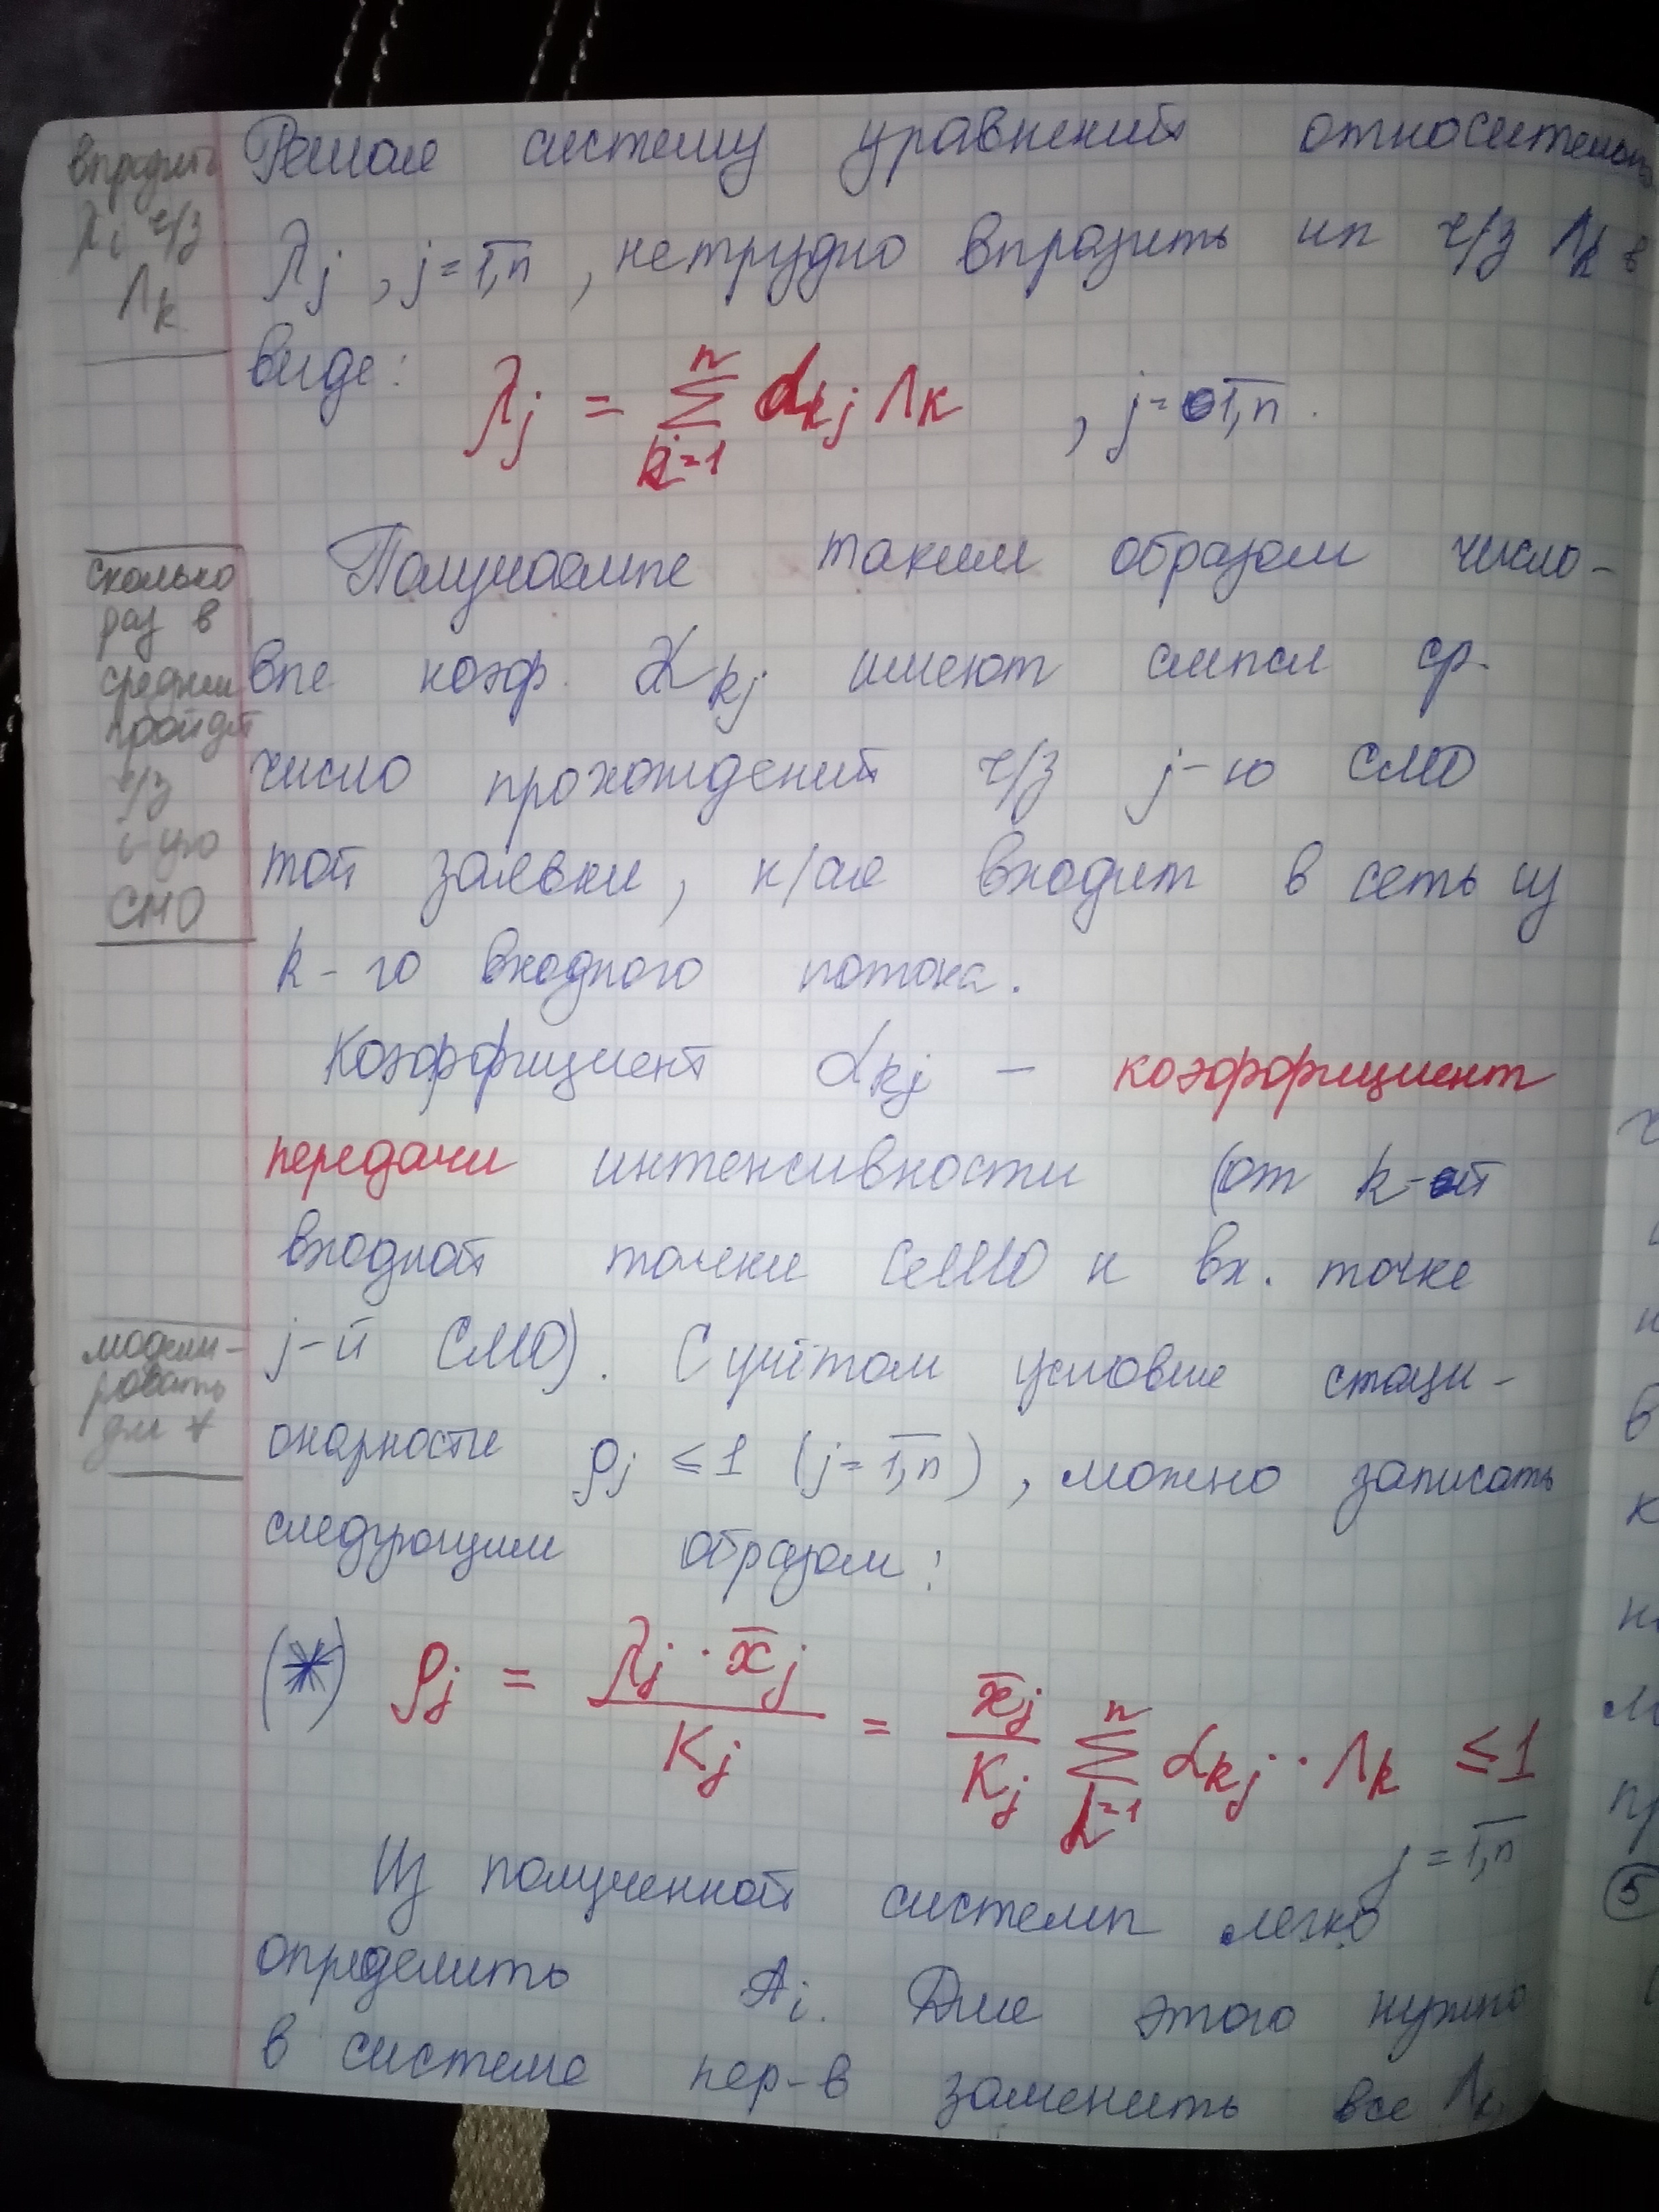 выразить
λi ч/з
Λk
Решая систему уравнений относительно
λj , j=1,n , нетрудно выразить их ч/з Λk в
виде:
λj = Σ αkj Λk , j=1,n.
n
k=1
сколько
раз в
среднем
пройдёт
ч/з
i-ую
СМО
Получаемые таким образом число-
вые коэф. αkj имеют смысл ср.
число прохождений ч/з j-ю СМО
той заявки, к/ая входит в сеть из
k-го входного потока.
Коэффициент αkj – коэффициент
передачи интенсивности (от k-ой
входной точки СеМО к вх. точке
j-й СМО). С учётом условия стаци-
онарности ρj ≤ 1 (j=1,n), можно записать
следующим образом:
модели-
ровать
для *
(*) ρj = λj · x̄j / Kj = x̄j / Kj Σ αkj · Λk ≤ 1
n
k=1
j = 1,n
Из полученной системы легко
определить Ai. Для этого нужно
в системе нер-в заменить все Λk
5